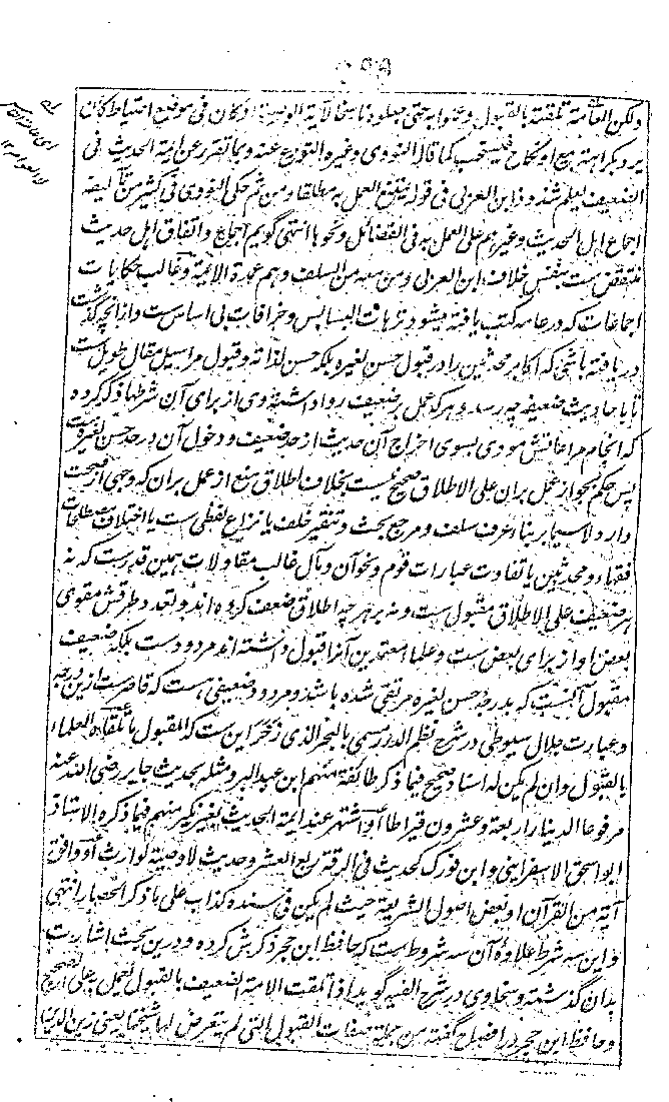 ولكن العامة تلقته بالقبول وعملوا به حتى جعلوه ناسخا لآية الوصية او كان فى موضع احتياط كان
يرد بكراهة بيع او نكاح فيستحب كما قال النووى وغيره التورع عنه وبما تقرر عن ائمة الحديث فى
الضعيف ليعلم شذوذ ابن العربى فى قوله يمتنع العمل به مطلقا ومن ثم حكى النووى فى كثير من تآليفه
اجماع اهل الحديث وغيرهم على العمل به فى الفضائل ونحوها انتهى گويم اجماع واتفاق اہل حديث
منتقض ست بنفس خلاف ابن العربى ومن معه من السلف وهم عمدة الائمة وغالب حكايات
اجماعات كه در عامه كتب يافته ميشود ترہات البسابس وخرافات بى اساس ست واز آنچه گذشت
دريافته باشى كه اكابر محدثين را در قبول حسن لغيره بلكه حسن لذاته وقبول مراسيل مقال طويل ست
تا باحاديث ضعيفه چه رسد وہر كه عمل بر ضعيف روا داشته وى از براى آن شرطها ذكر كرده
كه انجام مراعاتش مودى بسوى اخراج آن حديث از حد ضعيف ودخول آن در حد حسن لغيره ست
پس حكم بجواز عمل بران على الاطلاق صحيح نيست بخلاف اطلاق منع از عمل بران كه وجهى از صحت
دارد لاسيما بر بناء عرف سلف ومرجع بحث وتنقير خلف يا نزاع لفظى ست يا اختلاف مصطلحات
فقهاء ومحدثين يا تفاوت عبارات قوم ونحو آن ومآل غالب مقاولات ہمين قدر ست كه نه
ہر ضعيف على الاطلاق مقبول ست ونه ہر چه اطلاق ضعف كرده اند وتعدد طرقش مقوى
بعض او از براى بعض ست وعلماء معتمدين آنرا قبول داشته اند مردود ست بلكه ضعيف
مقبول آنست كه بدرجۀ حسن لغيره مرتقى شده باشد ومردود ضعيفى ست كه قاصر ست ازين درجه
وعبارت جلال سيوطى در شرح نظم الدرر مسمى بالبحر الذى زخر اين ست كه المقبول ما تلقاه العلماء
بالقبول وان لم يكن له اسناد صحيح فيما ذكر طائفة منهم ابن عبد البر ومثله بحديث جابر رضى الله عنه
مرفوعا الدينار اربعة وعشرون قيراطا او اشتهر عند ائمة الحديث بغير نكير منهم فيما ذكره الاستاذ
ابو اسحق الاسفراينى وابن فورك كحديث فى الرقة ربع العشر وحديث لا وصية لوارث او وافق
آية من القرآن او بعض اصول الشريعة حيث لم يكن فى سنده كذاب على ما ذكر الحصار انتهى
واين سه شرط علاوۀ آن سه شروط ست كه حافظ ابن حجر ذكرش كرده ودرين بحث اشارت
بدان گذشته وسخاوى در شرح الفيه گويد اذا تلقت الامة الضعيف بالقبول يعمل به على الصحيح
وحافظ ابن حجر در افصاح گفته من جملة صفات القبول التى لم يتعرض لها شيخنا يعنى زين الدين